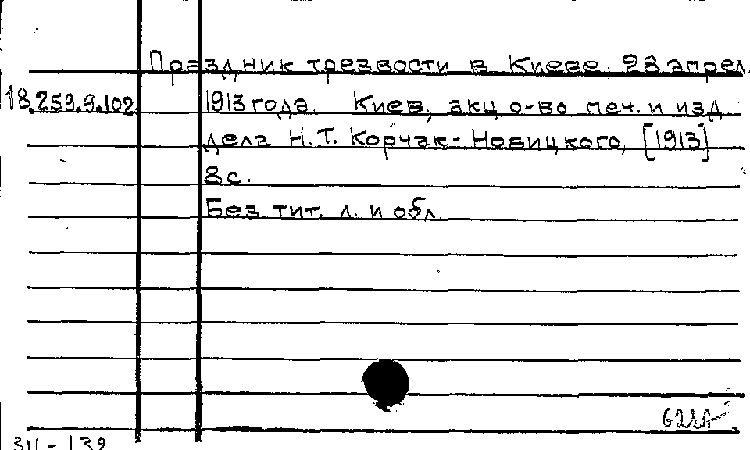 Праздник трезвости в Киеве 28 апрел.
18.259.9.102 1913 года. Киев, акц. о-во печ. и изд.
дела Н.Т. Корчак-Новицкого, [1913]
8 с.
Без тит. л. и обл.